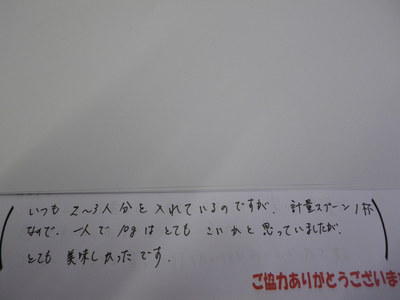 いつも 2〜3人分を入れているのですが、計量スプーン1杯
なので、一人で10gはとても こいかと思っていましたが、
とても 美味しかったです。
ご協力ありがとうございま